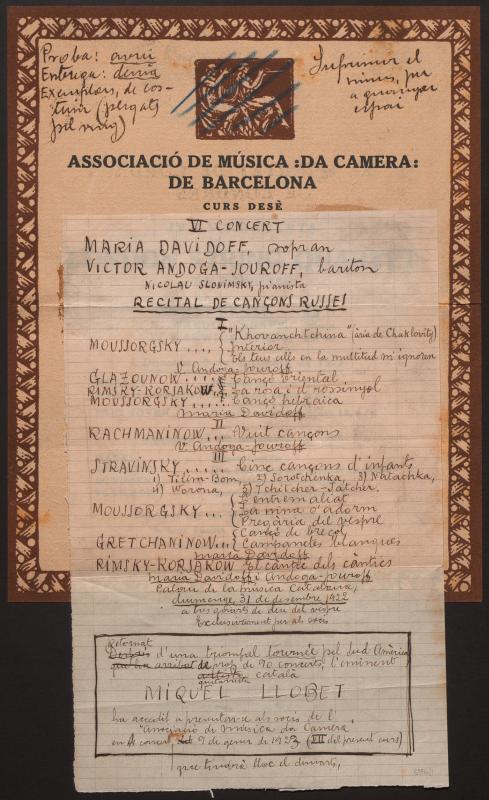 Proba: avui
Entrega: demà
Exemplars, de cos-
tum (plegats
pel mig)
Imprimir el
mínus, per
a guanyar
espai
ASSOCIACIÓ DE MÚSICA :DA CAMERA:
DE BARCELONA
CURS DESÈ
VI CONCERT
MARIA DAVIDOFF, sopran
VICTOR ANDOGA-JOUROFF, bariton
NICOLAU SLONIMSKY, pianista
RECITAL DE CANÇONS RUSSES
I
MOUSSORGSKY .... "Khovanchtchina" (ària de Chaklovity)
Interior
Els teus ulls en la multitud m'ignoren
V. Andoga-Jouroff
GLAZOUNOW ..... Cançó Oriental
RIMSKY-KORSAKOW .. La rosa i el rossinyol
MOUSSORGSKY .... Cançó hebraica
Maria Davidoff
II
RACHMANINOW ... Vuit cançons
V. Andoga-Jouroff
III
STRAVINSKY ..... Cinc cançons d'infants
1) Tilim-Bom, 2) Sorotchenka, 3) Natachka,
4) Worona, 5) Tchitcher-Jatcher.
MOUSSORGSKY ... L'entremaliat
La nina s'adorm
Pregària del vespre
GRETCHANINOW... Cançó de breçol
Campanetes blanques
Maria Davidoff
RIMSKY-KORSAKOW El càntic dels càntics
Maria Davidoff i Andoga-Jouroff
Palau de la Música Catalana,
diumenge, 31 de desembre 1922
a tres quarts de deu del vespre
Exclusivament per als socis
Retornat
d'una triomfal tournée pel Sud-Amèrica
de prop de 90 concerts, l'eminent
guitarrista català
MIQUEL LLOBET
ha accedit a presentar-se als socis de l'
Associació de Música da Camera
en el concert 9 de gener de 1923 (VII del present curs)
que tindrà lloc el dimarts,